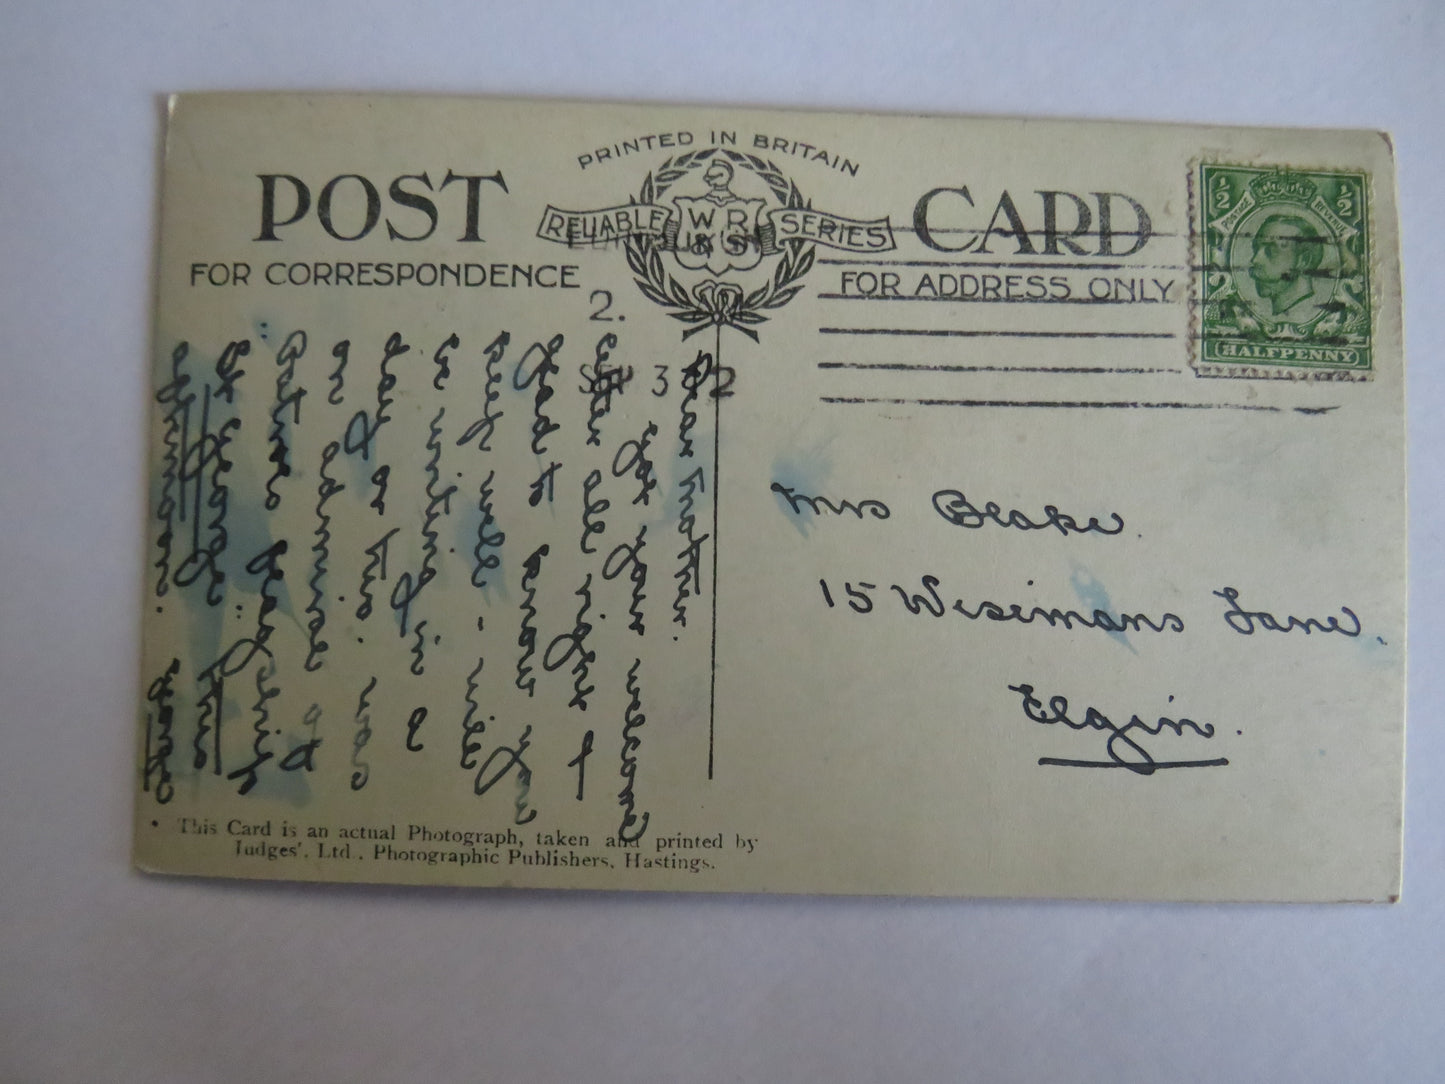 PRINTED IN BRITAIN
POST CARD
RELIABLE WR & S SERIES
FOR CORRESPONDENCE
FOR ADDRESS ONLY
½ ½
POSTAGE REVENUE
HALFPENNY
2.
SEP 3 12
Dear Mother.
got your welcome
letter all right &
glad to know you
keep well. I will
be writing in a
day or two. was
on
flag ship
St George: this
afternoon. George
Mrs Blake.
15 Wisemans Lane.
Elgin.
This Card is an actual Photograph, taken and printed by
Judges', Ltd., Photographic Publishers, Hastings.